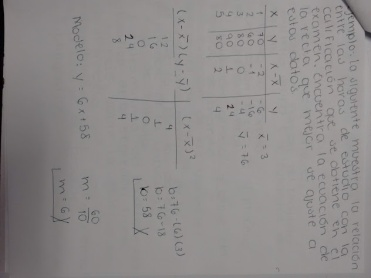 Ejemplo: la siguiente muestra la relación
entre las horas de estudio con la
calificación que se obtiene en el
examen, encuentra la ecuación de
la recta que mejor se ajuste a
estos datos
X Y x-x̄ y
1 70 -2 -6 x̄ = 3
2 60 -1 -16
3 80 0 -4 ȳ = 76
4 90 1 24
5 80 2 4
(x-x̄)(y-ȳ) (x-x̄)²
12 4
16 1
0 0
24 1
8 4
b=76-(6)(3)
b=76-18
b=58
Modelo: y = 6x+58
m = 60/10
m = 6